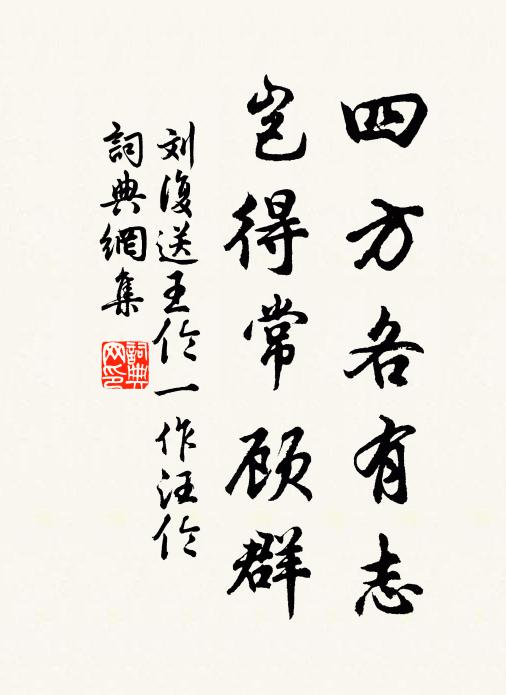 四方各有志
岂得常顾群
刘復送王伦一作汪伦
詞典網集
詞典网印